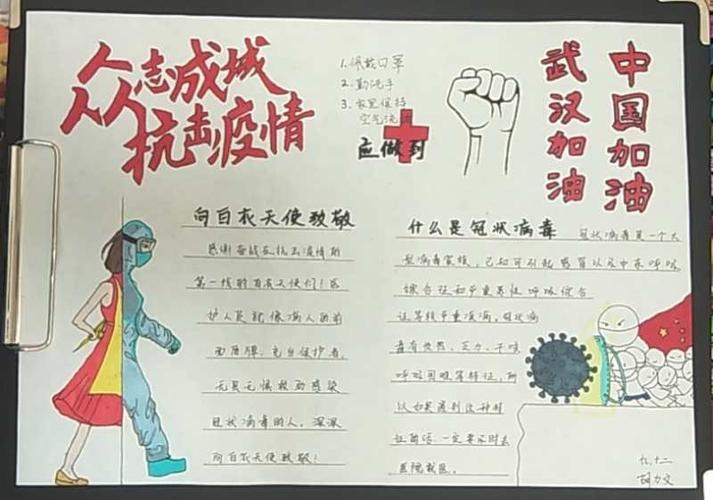 众志成城
抗击疫情
1. 佩戴口罩
2. 勤洗手
3. 家里保持
空气流通
应做到
武汉加油
中国加油
向白衣天使致敬
感谢奋战在抗击疫情的
第一线的白衣天使们！医
护人员就像病人面前
面盾牌，充当保护者，
无畏无惧救助感染
冠状病毒的人，深深
向白衣天使致敬！
什么是冠状病毒
冠状病毒是一个大
型病毒家族，已知可引起感冒以及中东呼吸
综合征和严重急性呼吸综合
征等较严重疾病，冠状病
毒有发热、乏力、干咳
呼吸困难等特征，所
以如果遇到这种症
一定要及时去
医院就医。
九.十二
胡力文